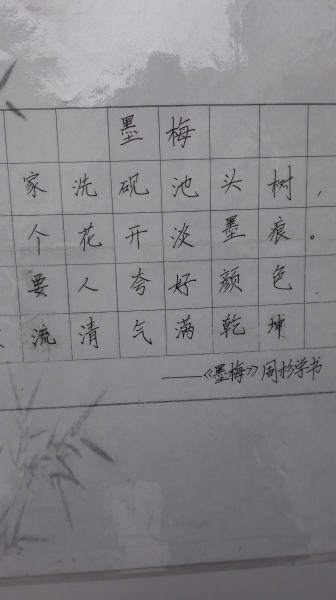 墨梅
家洗砚池头树，
个花开淡墨痕。
要人夸好颜色，
流清气满乾坤
——《墨梅》周杉学书